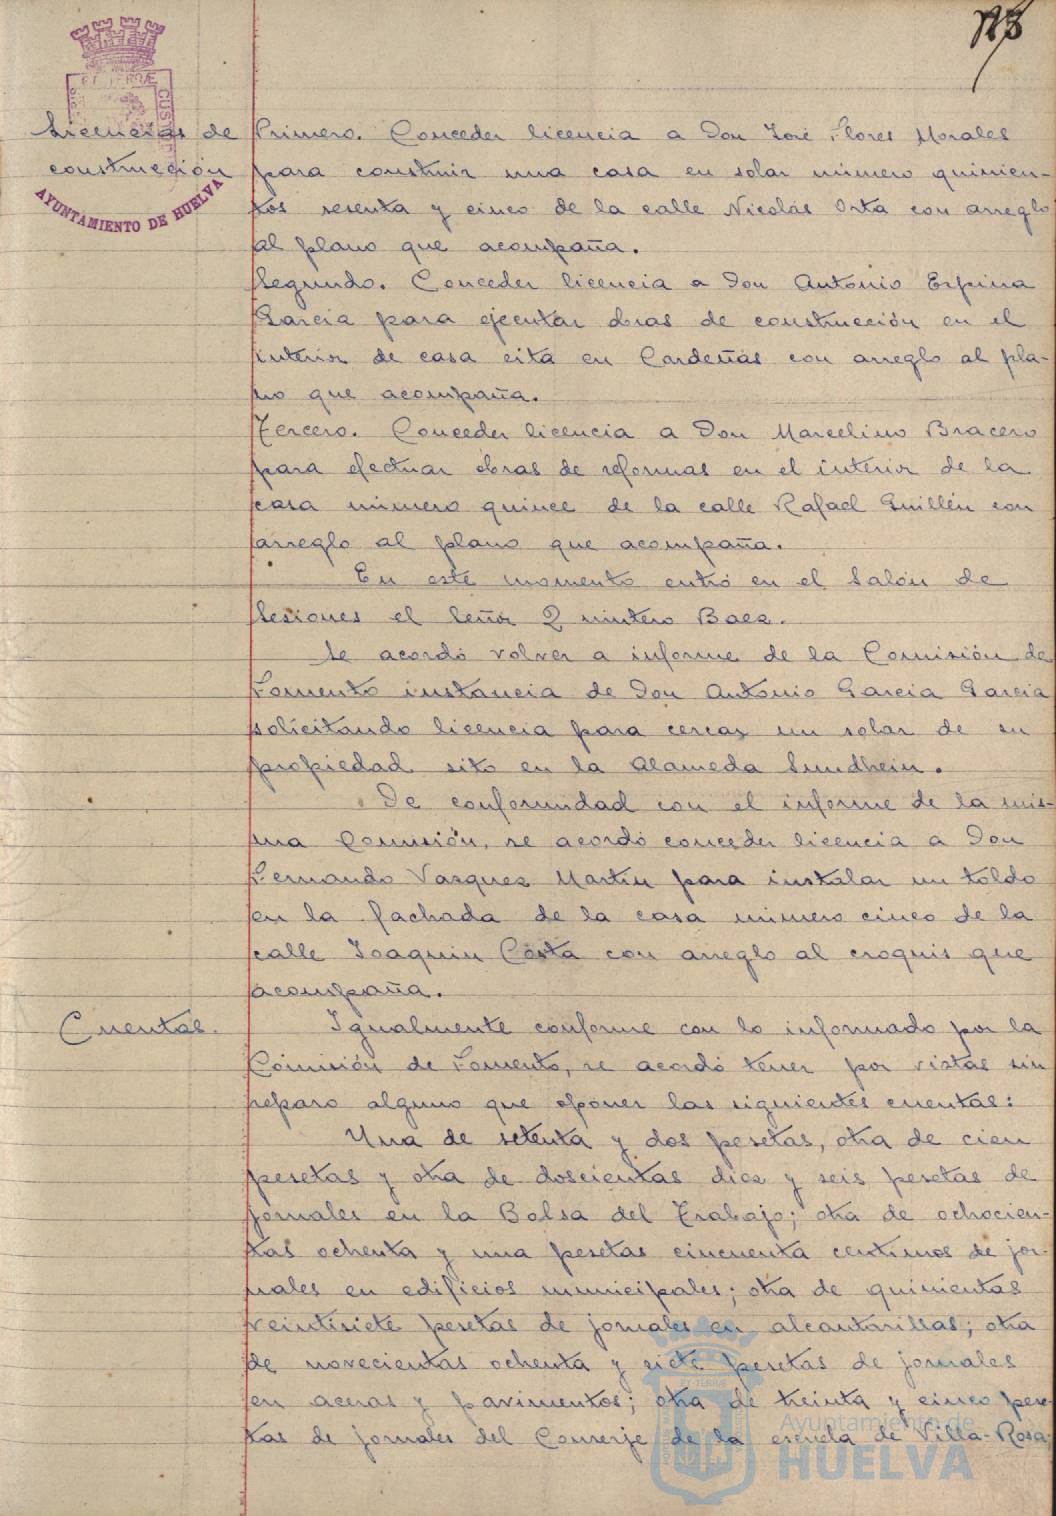 113
Licencias de
construcción
AYUNTAMIENTO DE HUELVA
Primero. Conceder licencia a Don José Flores Morales
para construir una casa en solar número quinien-
tos sesenta y cinco de la calle Nicolás Orta con arreglo
al plano que acompaña.
Segundo. Conceder licencia a Don Antonio Espina
García para ejecutar obras de construcción en el
interior de casa cita en Cardeñas con arreglo al pla-
no que acompaña.
Tercero. Conceder licencia a Don Marcelino Bracero
para efectuar obras de reformas en el interior de la
casa número quince de la calle Rafael Guillén con
arreglo al plano que acompaña.
En este momento entró en el Salón de
Sesiones el Señor Quintero Baez.
Se acordó volver a informe de la Comisión de
Fomento instancia de Don Antonio Garcia Garcia
solicitando licencia para cercar un solar de su
propiedad sito en la Alameda Sundhein.
De conformidad con el informe de la mis-
ma Comisión, se acordó conceder licencia a Don
Fernando Vazquez Martin para instalar un toldo
en la fachada de la casa número cinco de la
calle Joaquin Costa con arreglo al croquis que
acompaña.
Cuentas.
Igualmente conforme con lo informado por la
Comisión de Fomento, se acordó tener por vistas sin
reparo alguno que oponer las siguientes cuentas:
Una de setenta y dos pesetas, otra de cien
pesetas y otra de doscientas diez y seis pesetas de
jornales en la Bolsa del Trabajo; otra de ochocien-
tas ochenta y una pesetas cincuenta centimos de jor-
nales en edificios municipales; otra de quinientas
veintisiete pesetas de jornales en alcantarillas; otra
de novecientas ochenta y siete pesetas de jornales
en aceras y pavimentos; otra de treinta y cinco pese-
tas de jornales del Conserje de la escuela de Villa-Rosa;
Ayuntamiento de
HUELVA